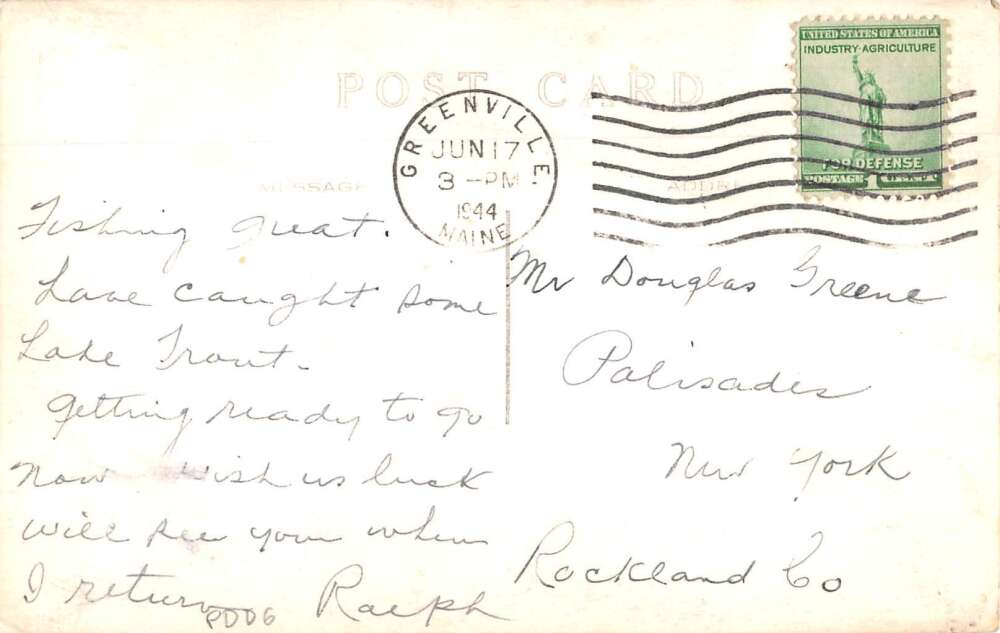 POST CARD
UNITED STATES OF AMERICA
INDUSTRY·AGRICULTURE
FOR DEFENSE
POSTAGE 1 CENT
GREENVILLE.
JUN 17
3 –PM
1944
MAINE
MESSAGE
ADDRE
Fishing great.
Have caught some
Lake Trout.
Getting ready to go
now wish us luck
will see you when
I return
Ralph
PDD6
Mr Douglas Greene
Palisades
New York
Rockland Co